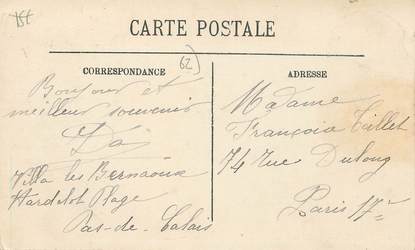 CARTE POSTALE
CORRESPONDANCE
62
ADRESSE
Bonjour et
meilleur souvenir
Villa les
Hardelot Plage
Pas-de-Calais
Madame
François Tillet
74 rue Dulong
Paris 17e